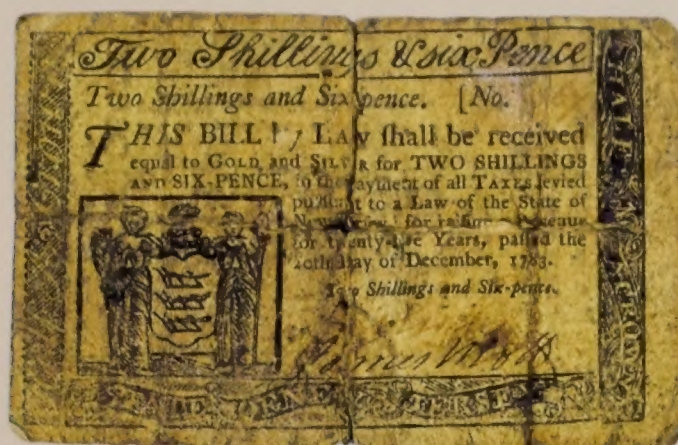 Two Shillings & six Pence
Two Shillings and Sixpence. [No.
THIS BILL by LAW ſhall be received
equal to GOLD and SILVER for TWO SHILLINGS
AND SIX-PENCE, in the Payment of all TAXES levied
purſuant to a Law of the State of
New-Jerſey, for raiſing a Revenue
for twenty-five Years, paſſed the
20th Day of December, 1783.
Two Shillings and Six-pence.
James
HALF A CROWN